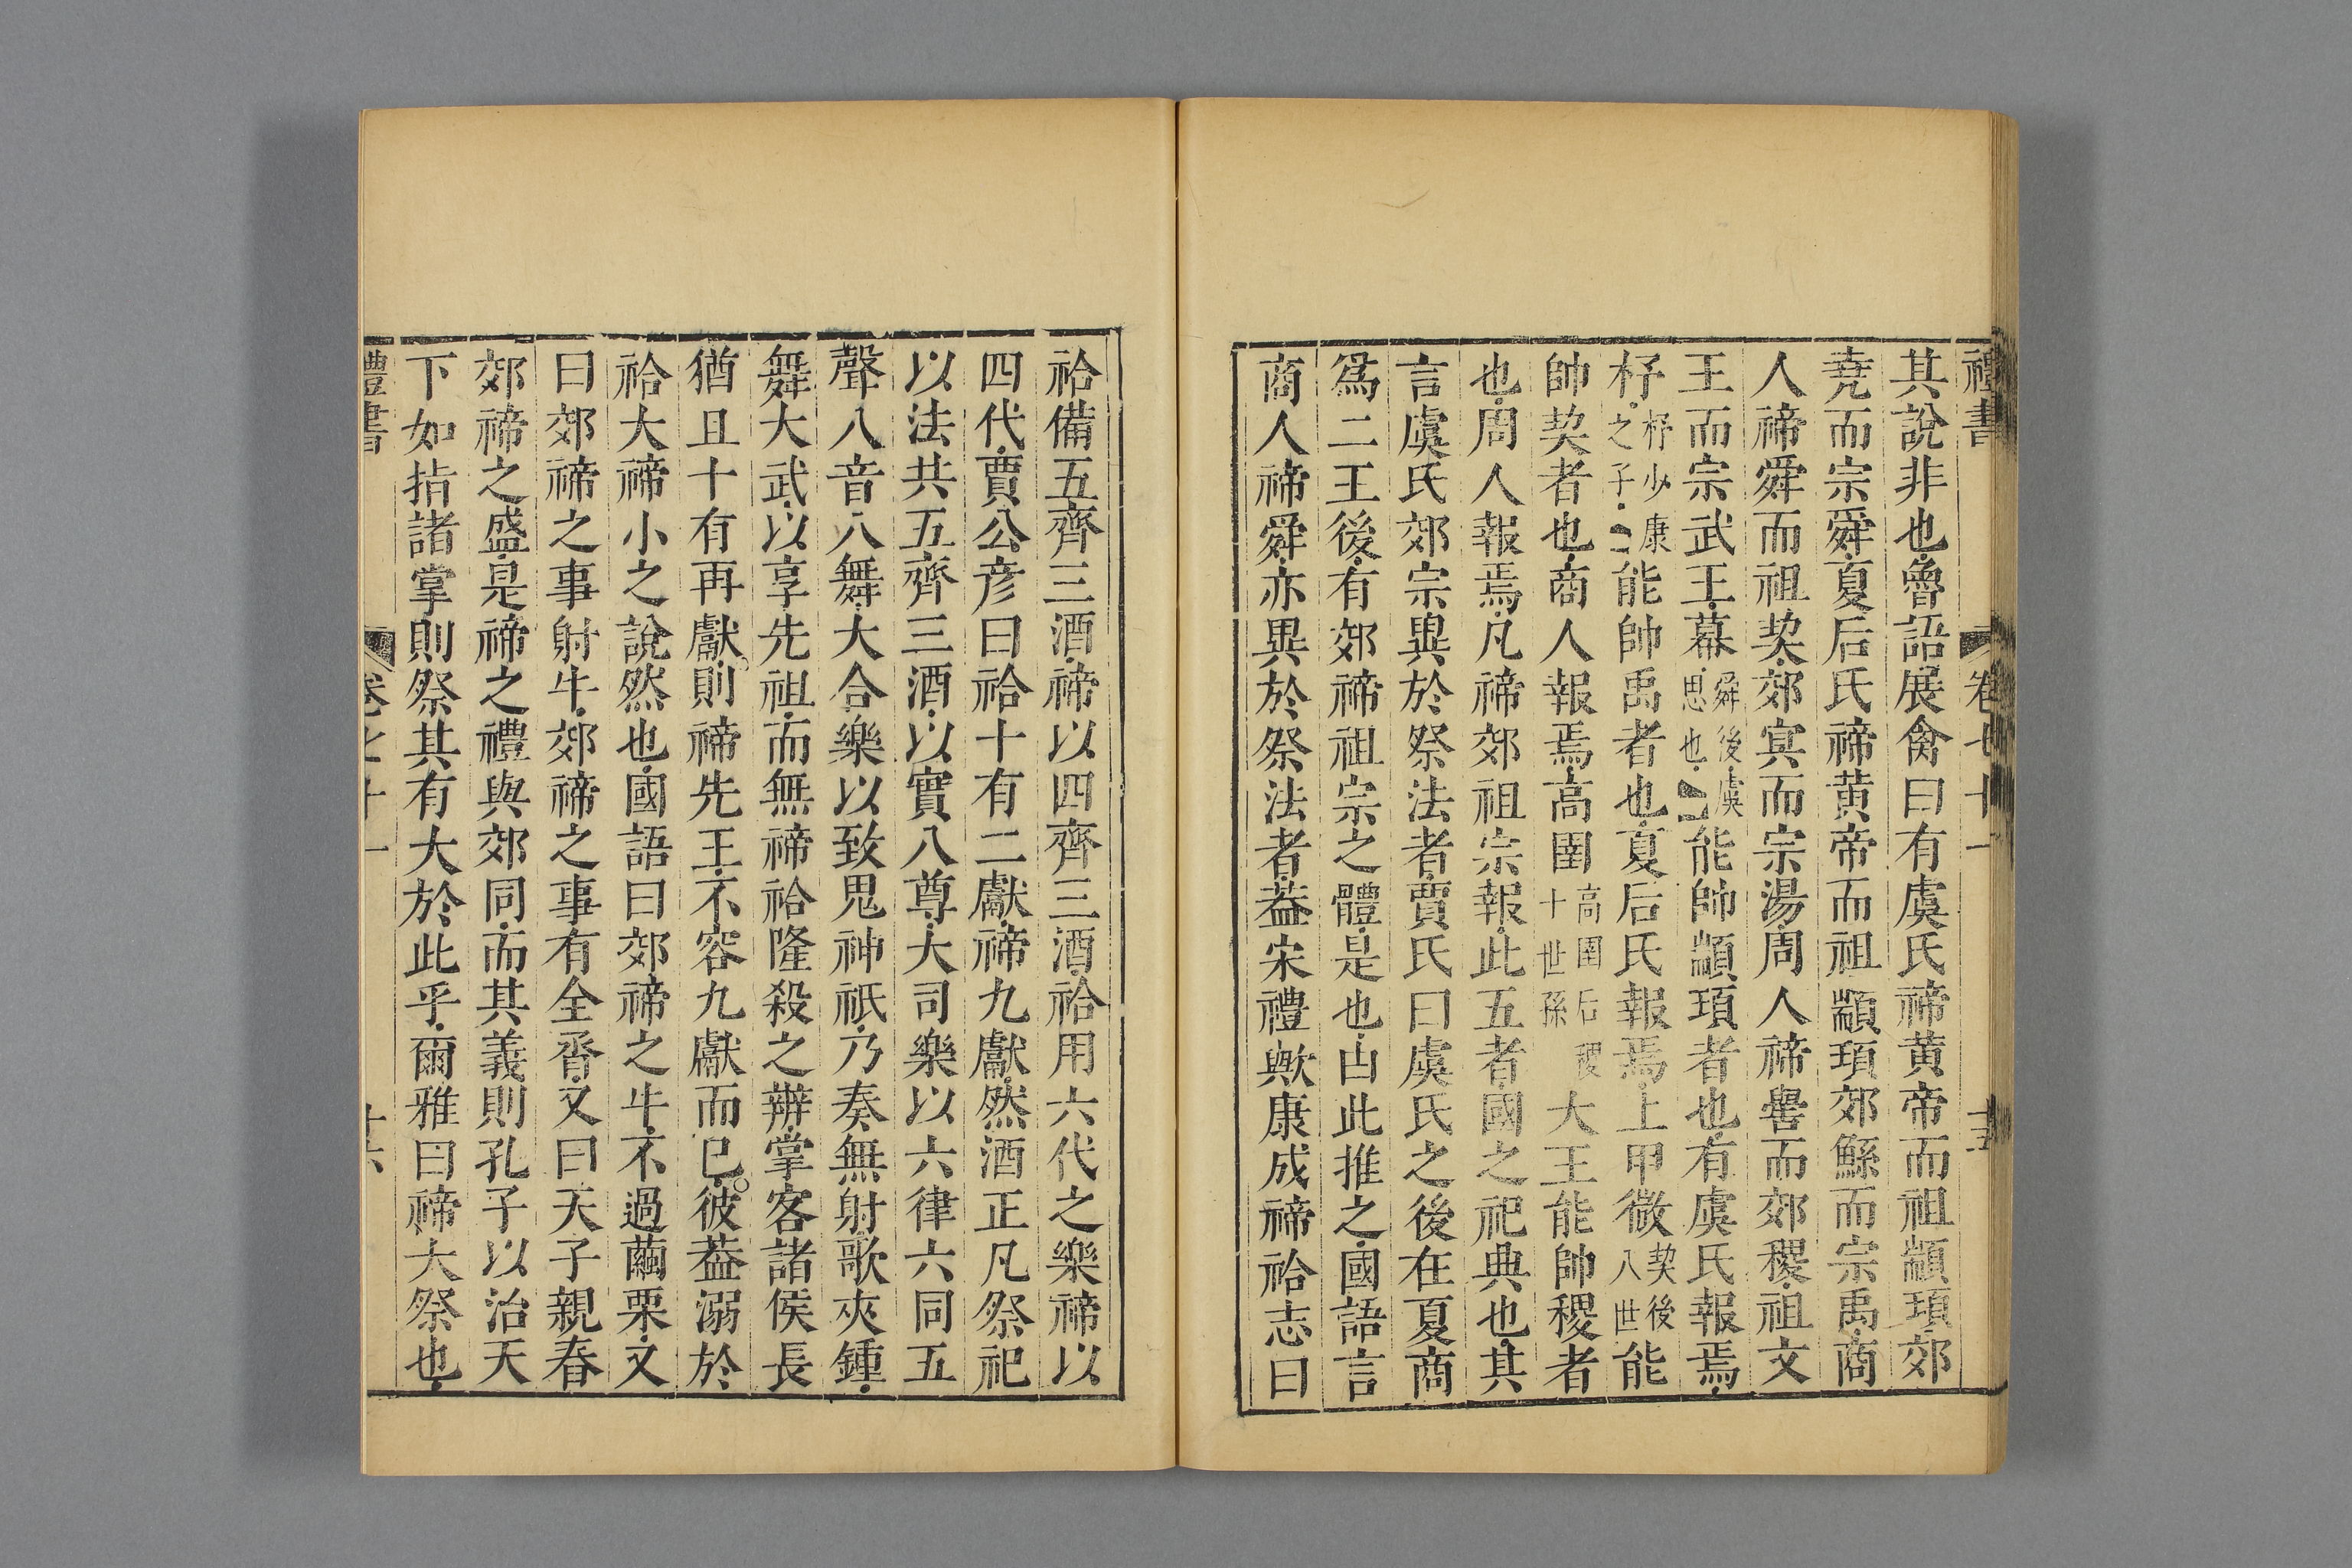 禮書 卷七十一 十五
其說非也魯語展禽曰有虞氏禘黃帝而祖顓頊郊
堯而宗舜夏后氏禘黃帝而祖顓頊郊鯀而宗禹商
人禘舜而祖契郊冥而宗湯周人禘嚳而郊稷祖文
王而宗武王幕舜後虞思也能帥顓頊者也有虞氏報焉
杼杼少康之子能帥禹者也夏后氏報焉上甲微契後八世能
帥契者也商人報焉高圉高圉后稷十世孫大王能帥稷者
也周人報焉凡禘郊祖宗報此五者國之祀典也其
言虞氏郊宗異於祭法者賈氏曰虞氏之後在夏商
爲二王後有郊禘祖宗之體是也由此推之國語言
商人禘舜亦異於祭法者葢宋禮歟康成禘祫志曰
祫備五齊三酒禘以四齊三酒祫用六代之樂禘以
四代賈公彦曰祫十有二獻禘九獻然酒正凡祭祀
以法共五齊三酒以實八尊大司樂以六律六同五
聲八音八舞大合樂以致鬼神祇乃奏無射歌夾鍾
舞大武以享先祖而無禘祫隆殺之辨掌客諸侯長
猶且十有再獻則禘先王不容九獻而已彼葢溺於
祫大禘小之說然也國語曰郊禘之牛不過繭栗又
曰郊禘之事射牛郊禘之事有全脀又曰天子親舂
郊禘之盛是禘之禮與郊同而其義則孔子以治天
下如指諸掌則祭其有大於此乎爾雅曰禘大祭也
禮書 卷七十一 十六